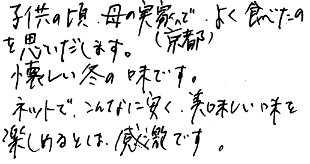 子供の頃、母の実家で、よく食べたの
(京都)
を思いだします。
懐しい冬の味です。
ネットで、こんなに安く、美味しい味を
楽しめるとは、感激です。